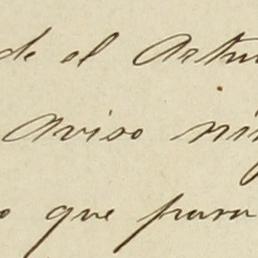 de el Artu
Aviso nin
o que para